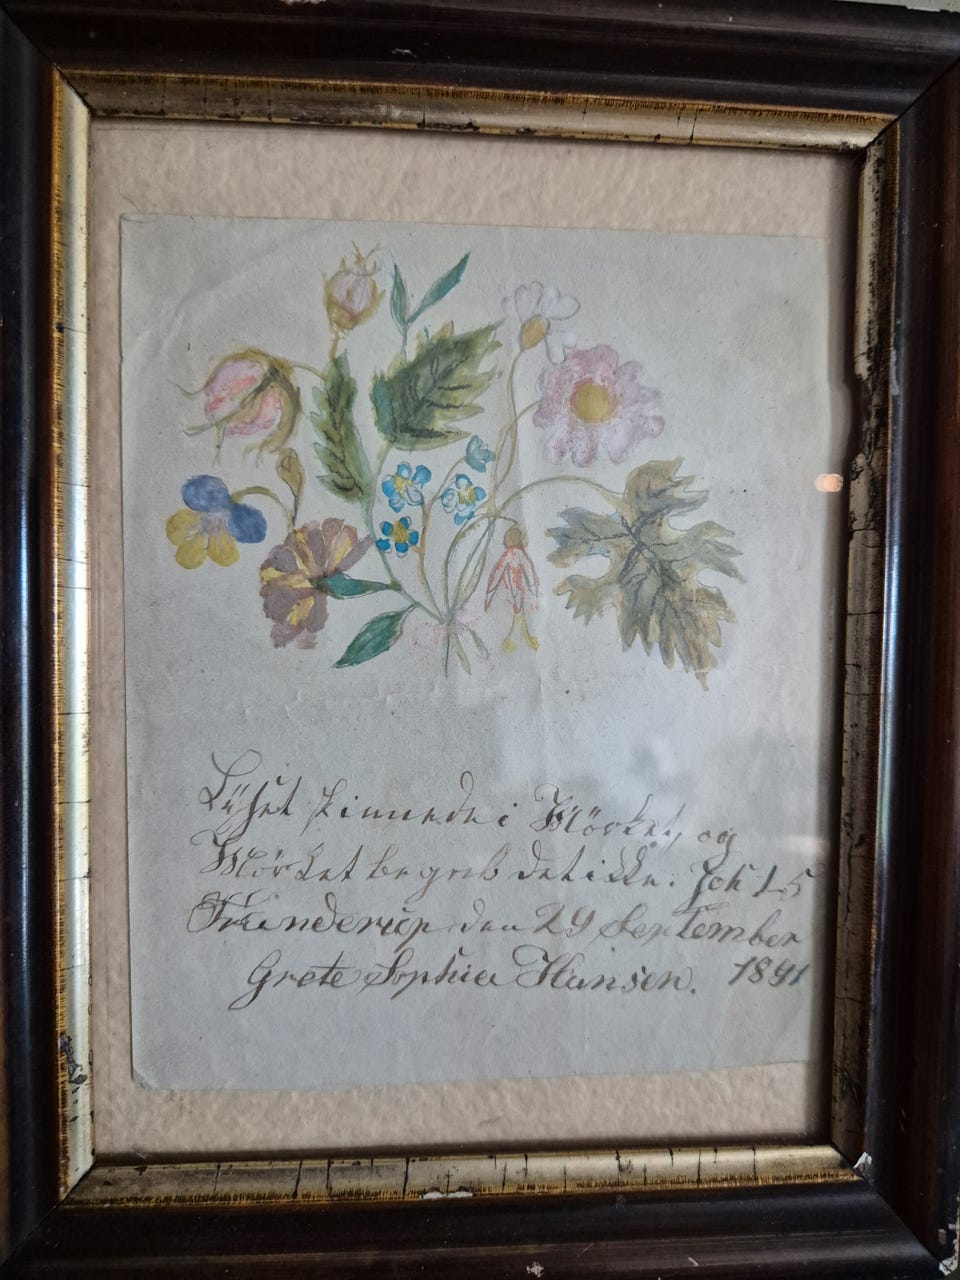 Lyset skinnede i Mörket, og
Mörket begreb det ikke. Joh 1-5
den 29 September
Grete Sophie Hansen. 1891